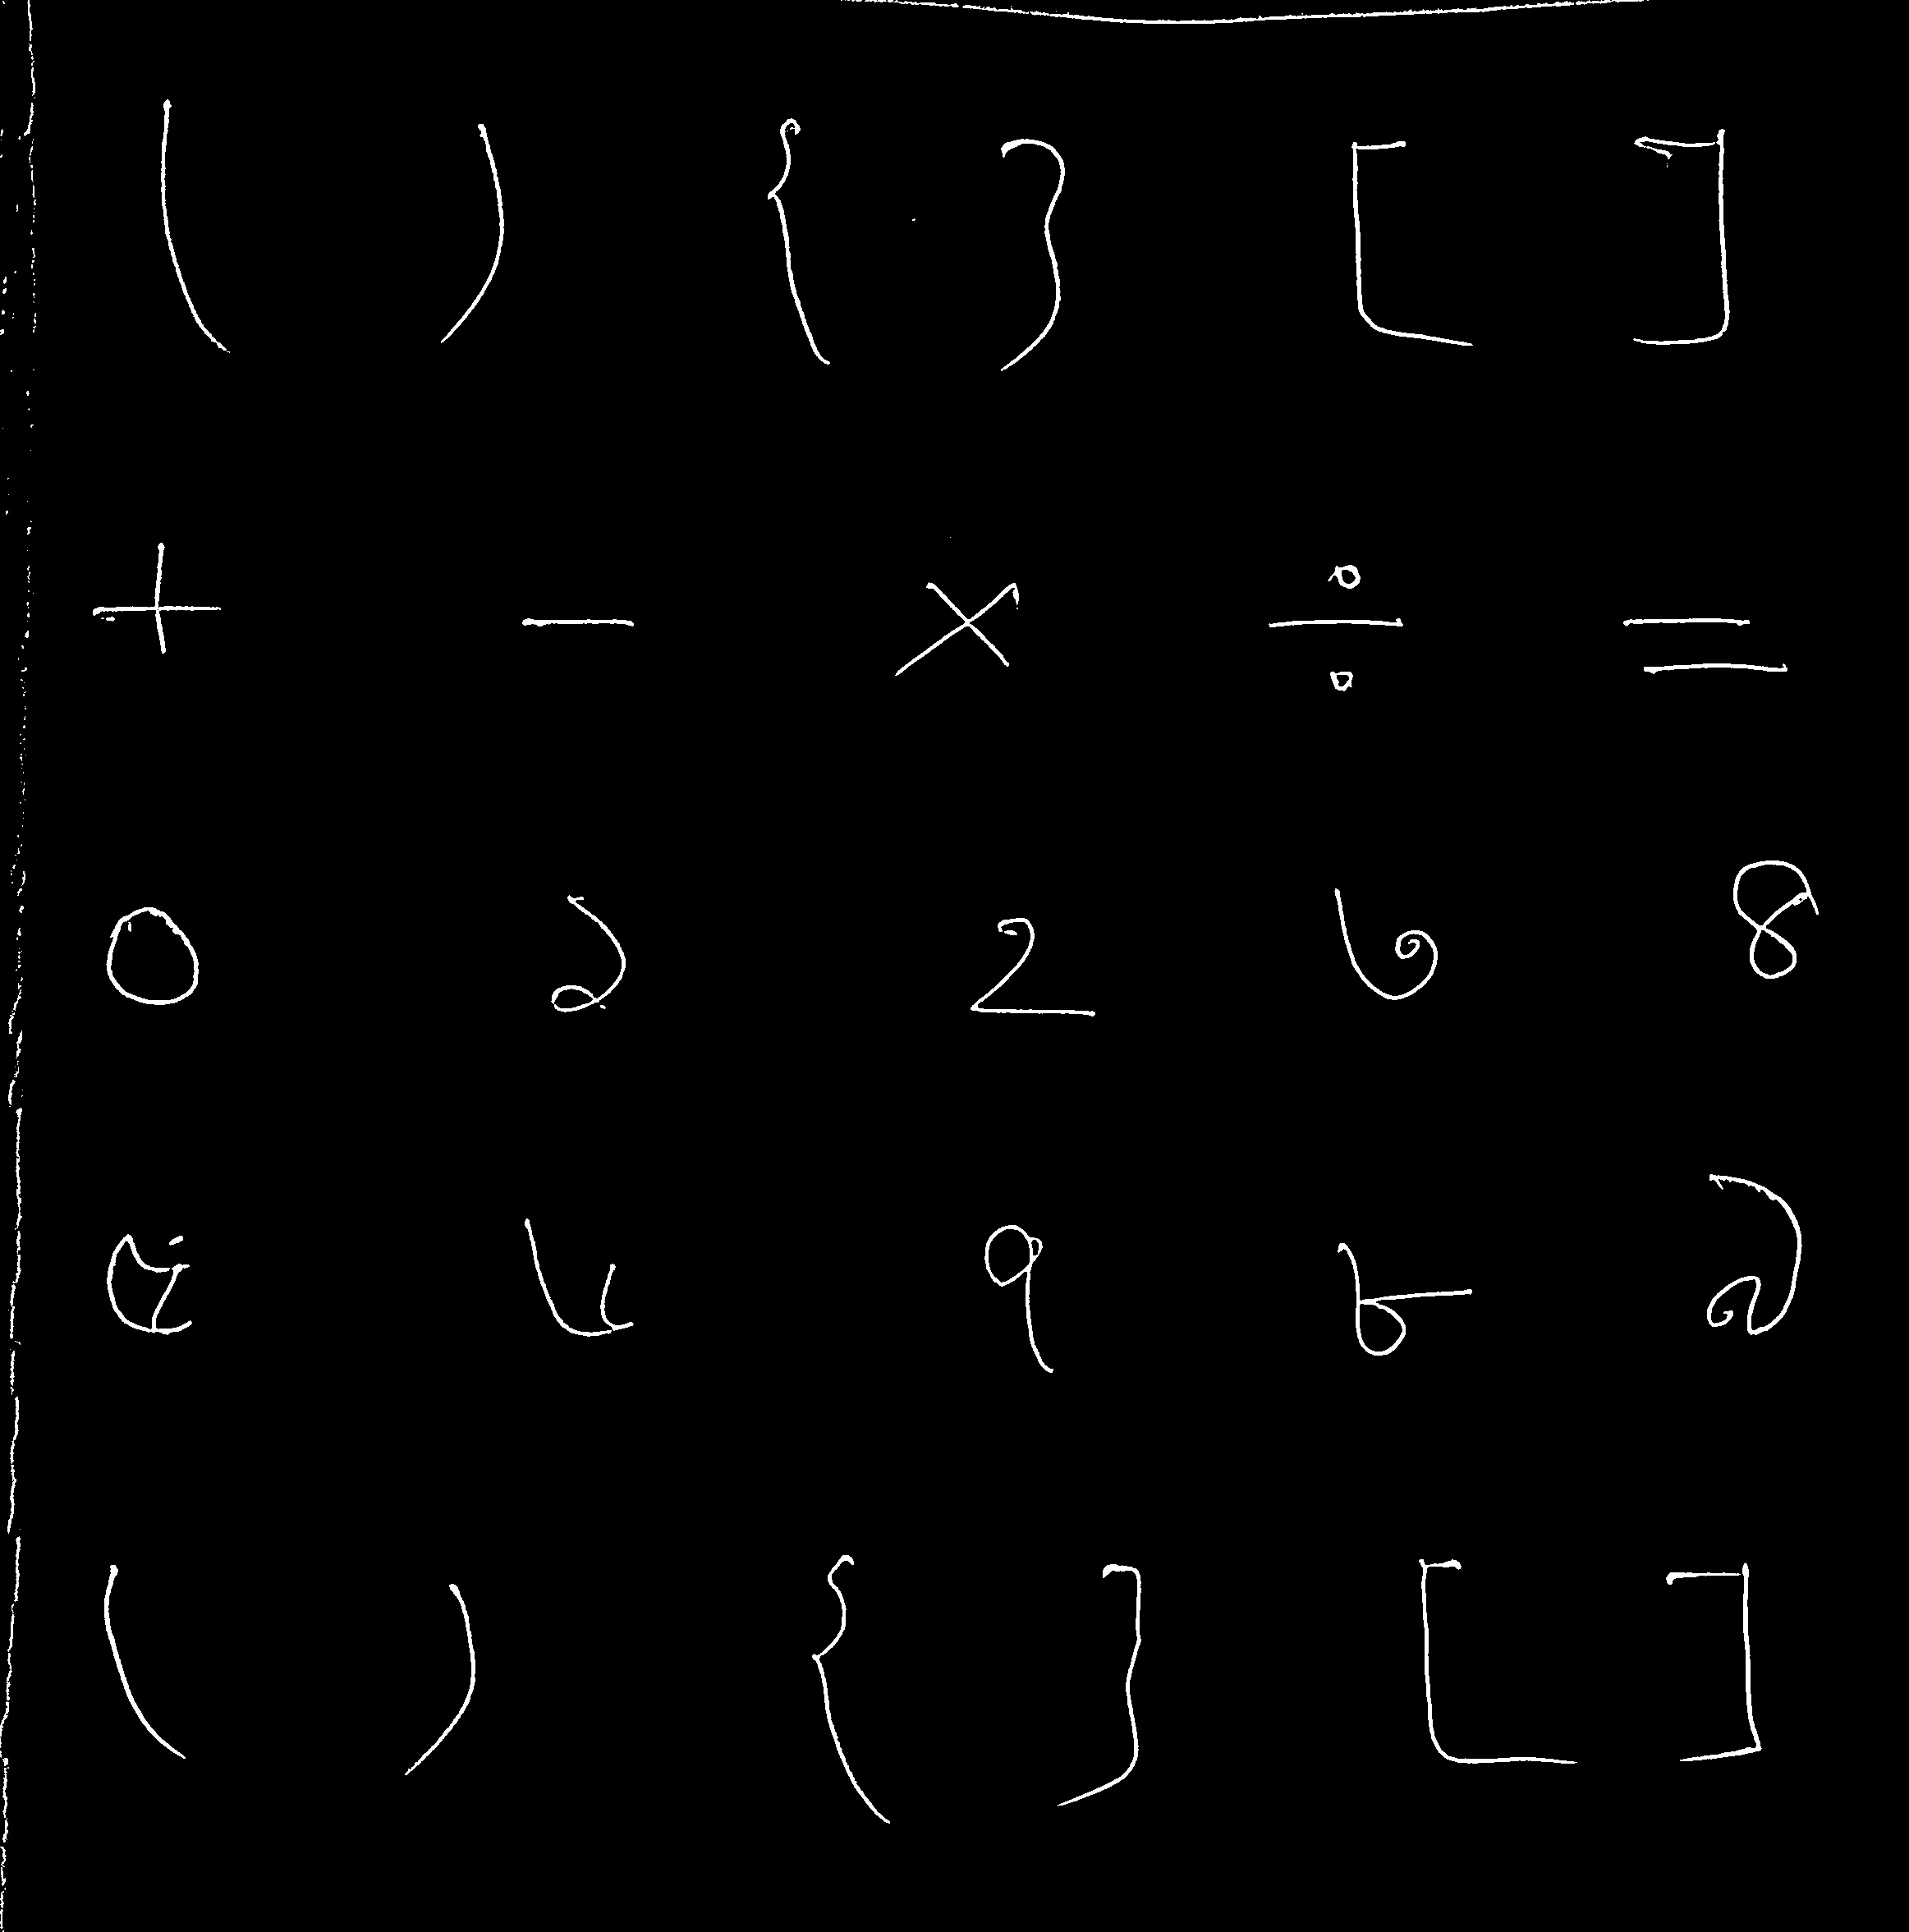 ( ) { } [ ]
+ - × ÷ =
০ ১ ২ ৩ ৪
৫ ৬ ৭ ৮ ৯
( ) { } [ ]